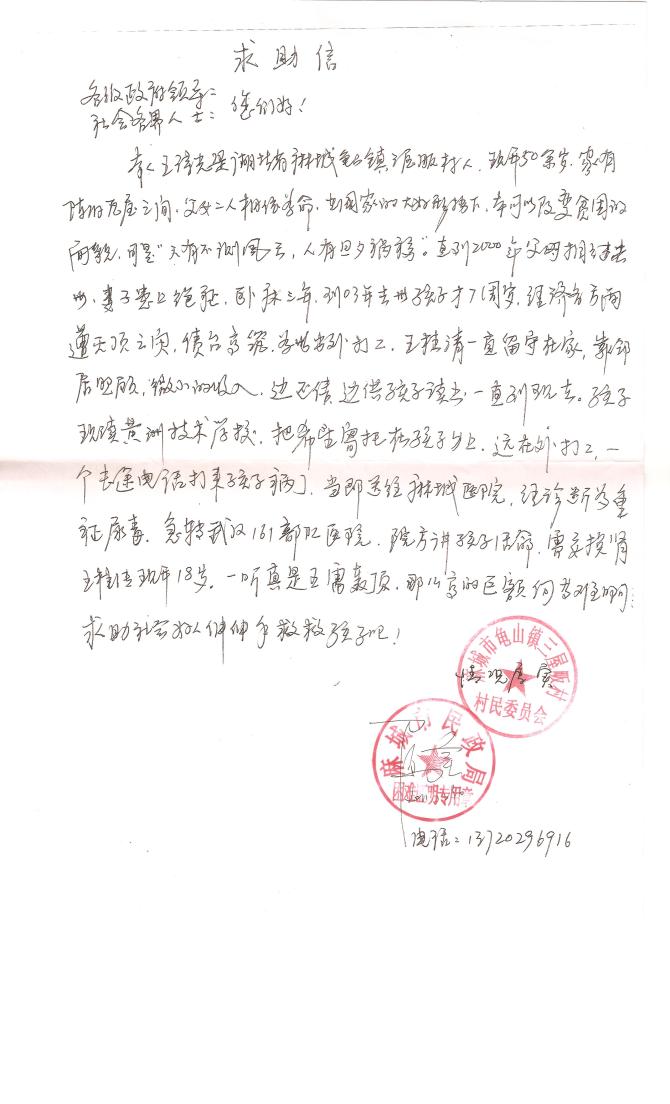 求助信
各级政府领导:
社会各界人士: 您们好!
本人王 是湖北省麻城龟山镇三屋畈村人,现年50余岁,家有
砖的瓦屋三间,父女二人相依为命,在国家的大好形势下,本可以改变贫困的
面貌,可是“天有不测风云,人有旦夕祸福”。直到2000年父母相继去
世,妻子患上绝症,卧床三年,到03年去世孩子才7周岁,经济各方面
遭灭顶之灾,债台高筑,为此出外打工,王 一直留守在家,靠邻
居照顾,微小的收入,边还债边供孩子读书一直到现在。孩子
现读黄州技术学校,把希望寄托在孩子身上,远在外打工,一
个长途电话打来孩子病了,当即送经麻城医院,经诊断为重
症尿毒,急转武汉161部队医院,院方讲孩子活命,需要换肾
王 现年18岁,一听真是五雷轰顶,那么高的巨额何为难啊
求助社会好人伸伸手救救孩子吧!
情况属实
麻城市龟山镇三屋畈村
村民委员会
麻城市民政局
困难证明专用章
电话:13720296916